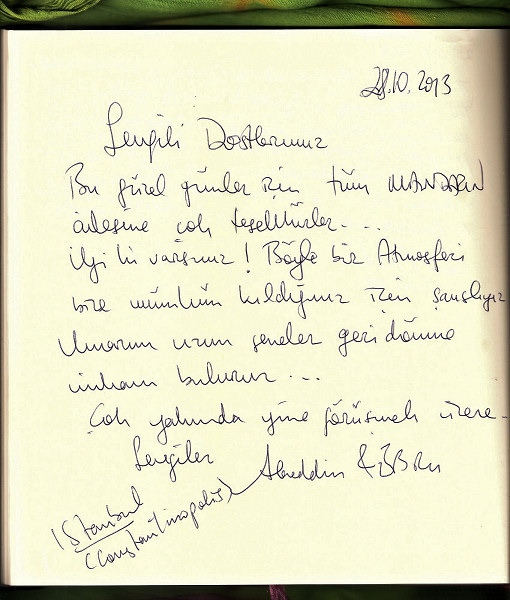 28.10.2013
Sevgili Dostlarımız
Bu güzel günler için tüm MANDARIN
ailesine çok teşekkürler...
iyi ki varsınız! Böyle bir Atmosferi
bize mümkün kıldığınız için şanslıyız
Umarım uzun seneler geri dönme
imkanı buluruz...
Çok yakında yine görüşmek üzere.
Sevgiler Alaeddin
İstanbul
(Constantinopolis)